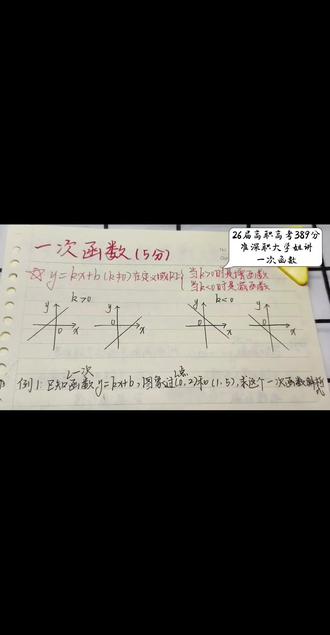 26届高职高考389分
准深职大学姐讲
一次函数
一次函数(5分)
☆ y=kx+b(k≠0)在定义域R上{当k>0时是增函数
当k<0时是减函数
k>0
k<0
y
y
y
y
0
x
0
x
0
x
0
x
一次
点
例1:已知函数y=kx+b,图象过(0,2)和(1,5),求这个一次函数解析式